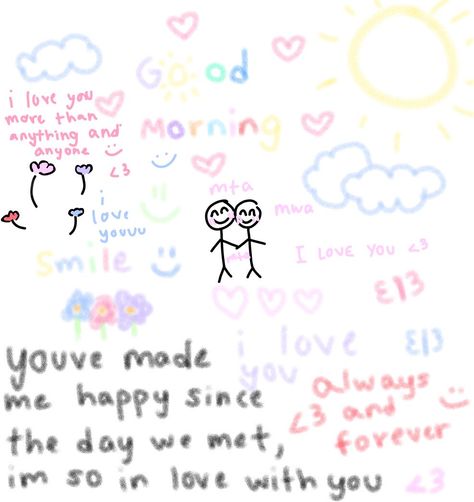 Good
Morning
i love you
more than
anything and
anyone :)
<3
i
love
youuu
:)
mta
mwa
smile :)
I LOVE YOU <3
ε|3
i love
you
ε|3
always
<3 and :)
forever
youve made
me happy since
the day we met,
im so in love with you <3